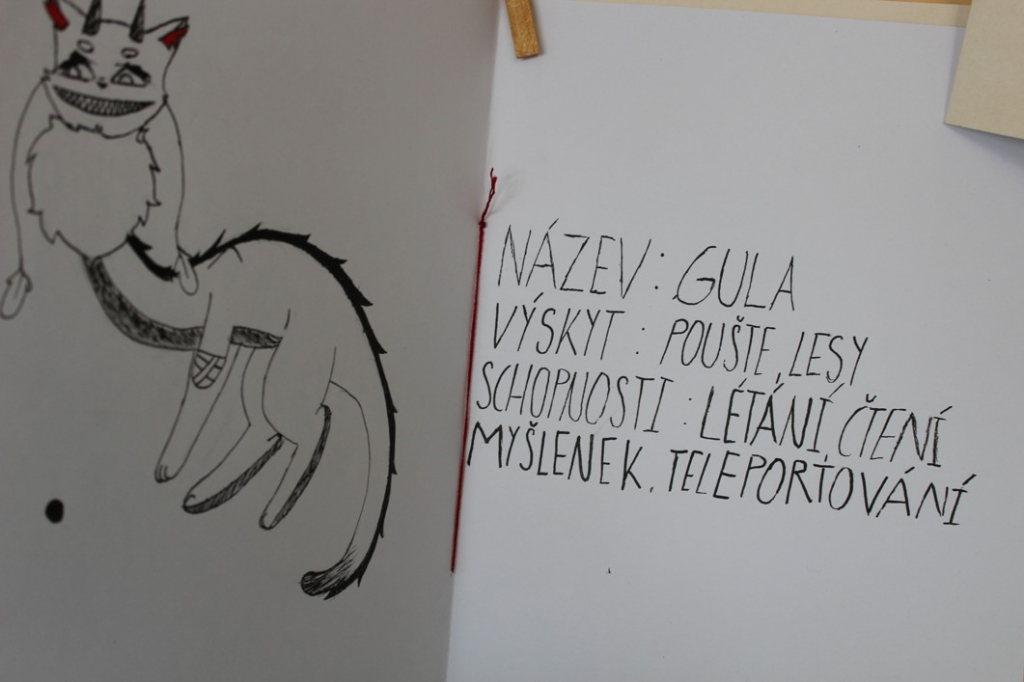 NÁZEV : GULA
VÝSKYT : POUŠTE, LESY
SCHOPNOSTI : LÉTÁNÍ, ČTENÍ
MYŠLENEK, TELEPORTOVÁNÍ